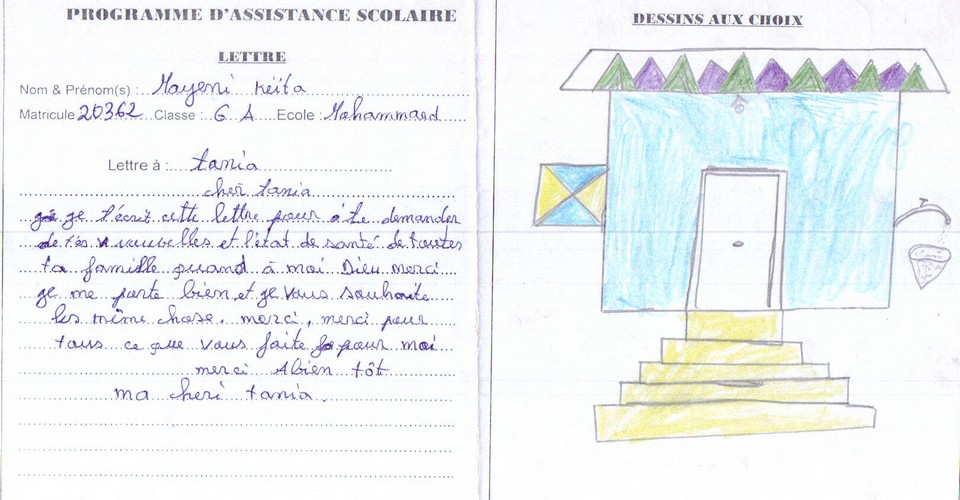 PROGRAMME D'ASSISTANCE SCOLAIRE
LETTRE
Nom & Prénom(s) : Mayeni Keita
Matricule 20362 Classe : 6 A Ecole : Mohammard
Lettre à : tania
cher tania
je t'écrit cette lettre pour te demander
de tes nouvelles et l'état de santé de toustes
ta famille quand à moi Dieu merci
je me porte bien et je vous souhaite
les même chose. merci, merci pour
tous ce que vous faite pour moi
merci Abien tôt
ma cheri tania.
DESSINS AUX CHOIX